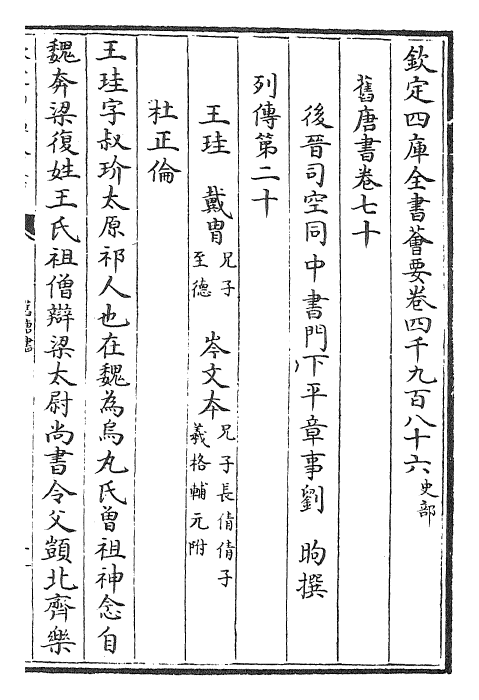 欽定四庫全書薈要卷四千九百八十六 史部
舊唐書卷七十
後晉司空同中書門下平章事劉　昫撰
列傳第二十
王珪　戴胄 兄子至德　岑文本 兄子長倩倩子羲格輔元附
杜正倫
王珪字叔玠太原祁人也在魏為烏丸氏曾祖神念自
魏奔梁復姓王氏祖僧辯梁太尉尚書令父顗北齊樂
舊唐書